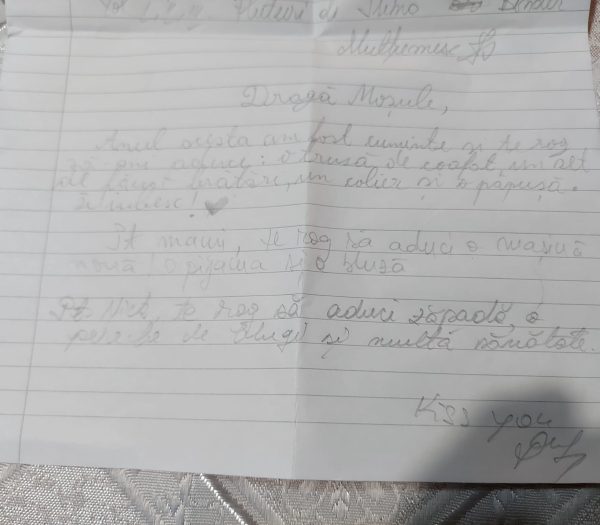 Mulțumesc
Dragă Moșule,
Anul acesta am fost cuminte și te rog
să-mi aduci: o trusă de coafat, un set
de bucătări, un colier și o păpușă.
Te iubesc!
Pt mami, te rog să aduci o mașină
nouă, o pijama și o bluză
Pt Nick, te rog să aduci zăpadă, o
pereche de blugi și multă sănătate.
Kiss you